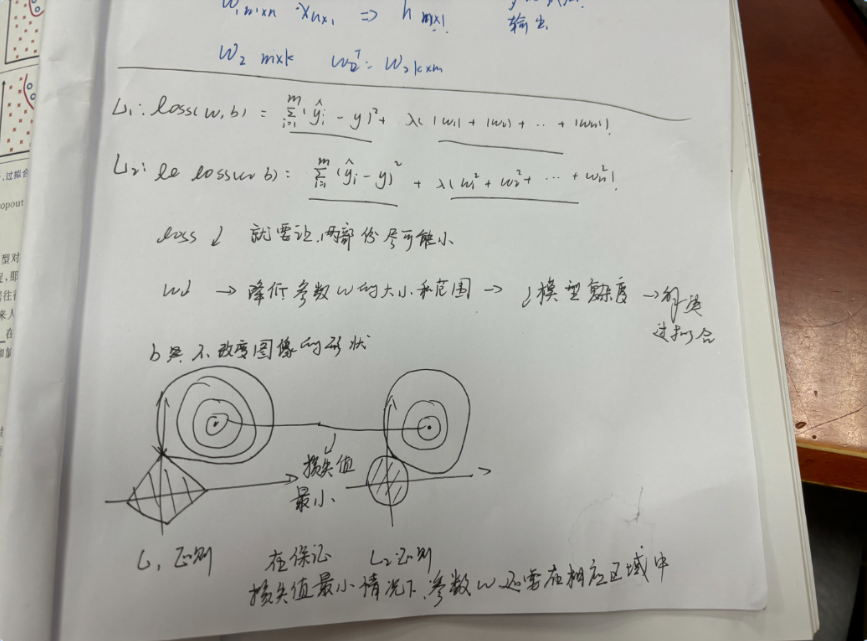 W₁ m×n · Xn×1 => h m×1
输出
W₂ m×k W₂ᵀ = W₂ k×m
L₁: loss(w,b) = Σᵢ₌₁ᵐ (ŷᵢ - y)² + λ(|w₁| + |w₂| + ... + |wₙ|)
L₂: loss(w,b): Σᵢ₌₁ᵐ (ŷᵢ - y)² + λ(w₁² + w₂² + ... + wₙ²)
loss ↓ 就要让两部份尽可能小
w↓ → 降低参数w的大小和范围 → ↓模型复杂度 → 解决
过拟合
b 不改变图像的形状
损失值
最小
L₁正则 在保证 L₂正则
损失值最小情况下,参数w还要在相应区域中
过拟合
opout
型对
往往
来人